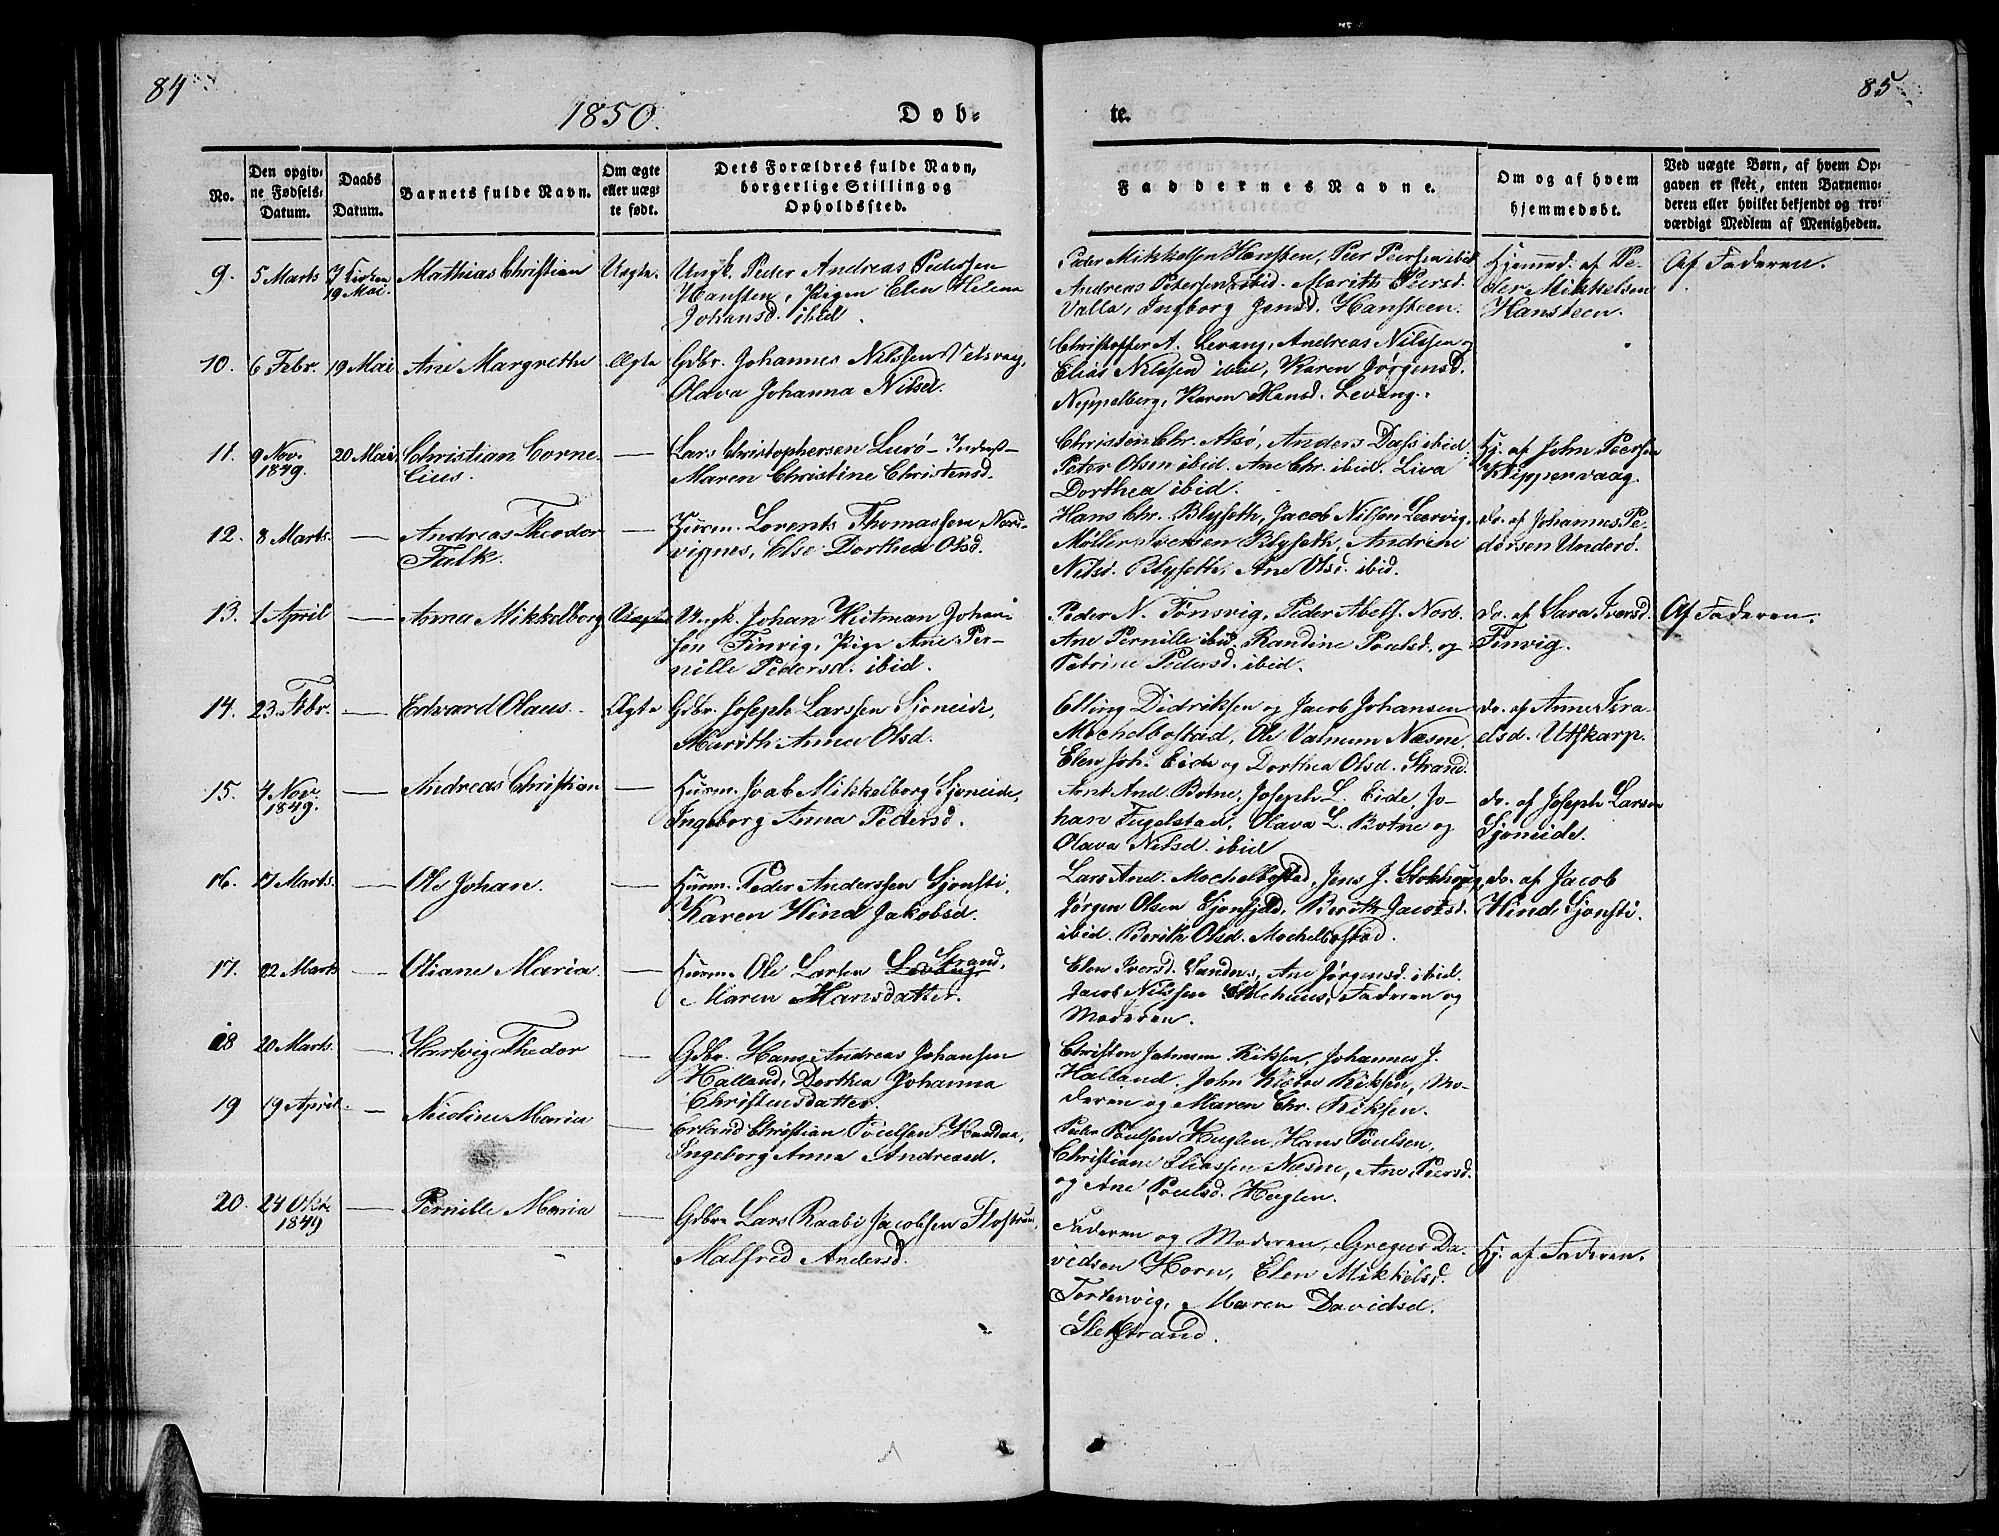 84
1850.
Døb-
No.
Den opgiv-
ne Fødsels-
Datum.
Daabs
Datum.
Barnets fulde Navn.
Om ægte
eller uæg-
te født.
Dets Forældres fulde Navn,
borgerlige Stilling og
Opholdssted.
9.
5 Marts
19 Mai.
Mathias Christian
Uægte.
Ungk. Peder Andreas Pedersen
Hansteen, Pigen Elen Helena
Johansd. ibid.
10.
6 Febr.
19 Mai
Ane Margrethe
Ægte
Gdbr. Johannes Nilssen Velsvag,
Olava Johanna Nilsd.
11.
9 Nov.
1849.
20 Mai
Christian Corne-
lius.
—
Lars Christophersen Lurø- Inderst-
Maren Christine Christensd.
12.
8 Marts.
—
Andreas Theodor
Falk.
—
Hurm. Lorents Thomassen Nord-
vignes, Else Dorthea Olsd.
13.
1 April
—
Anna Mikkelborg
Uægte
Ungk. Johan Heitman Johan-
sen Finvig, Pige Ane Per-
nille Pedersd. ibid.
14.
23 Febr.
—
Edvard Olaus.
Ægte
Gdbr. Joseph Larssen Sjoneide,
Marith Anna Olsd.
15.
4 Nov.
1849.
—
Andreas Christian
—
Hurm. Joab Mikkelborg Sjoneide,
Ingeborg Anna Pedersd.
16.
17 Marts.
—
Ole Johan.
—
Hurm. Peder Anderssen Sjonsti,
Karen Hind Jakobsd.
17.
22 Marts
—
Oliane Maria
—
Hurm. Ole Larsen Strand,
Maren Hansdatter.
18
20 Marts.
—
Hartvig Thedor
—
Gdbr. Hans Andreas Johansen
Halland, Dorthea Johanna
Christensdatter.
19
19 April.
—
Nicoline Maria
—
Erland Christian Poulsen Handnæ,
Ingeborg Anna Andreasd.
20.
24 Okr.
1849
—
Pernille Maria
—
Gdbr. Lars Raabi Jacobsen Flostrand,
Malfred Andersd.
85
te.
Faddernes Navne.
Om og af hvem
hjemmedøbt.
Ved uægte Børn, af hvem Op-
gaven er skeet, enten Barnemo-
deren eller hvilket bekjendt og tro-
værdigt Medlem af Menigheden.
Peder Mikkelsen Hansteen, Peer Peersen ibid
Andreas Petersen ibid. Marith Peersd.
Valla, Ingborg Jensd. Hansteen.
Hjemmed. af Pe-
der Mikkelsen
Hansteen.
Af Faderen.
Christoffer A. Levang, Andreas Nilssen og
Elias Nilssen ibid, Karen Jørgensd.
Neppelberg, Karen Hansd. Levang.
Christen Chr. Alsø, Anders Dass ibid.
Peter Olsen ibid. Ane Chr. ibid. Liva
Dorthea ibid.
Hj. af John Peersen
Klippenvaag.
Hans Chr. Blyseth, Jacob Nilsen Leervig,
Møller Iversen Blyseth, Andrine
Nilsd. Blyseth, Ane Olsd. ibid.
do. af Johannes Pe-
dersen Underø.
Peder N. Tønsvig, Peder Abels. Norb.
Ane Pernille ibid, Randine Poulsd. og
Petrine Pedersd. ibid.
do. af Sara Iversd.
Finvig.
Af Faderen.
Elling Didriksen og Jacob Johansen
Mochelbostad, Ole Valnum Næsne,
Elen Joh. Eide og Dorthea Olsd. Strand.
do. af Anne Isra-
elsd. Utskarp.
Arnt And. Botne, Joseph L. Eide, Jo-
han Fugelstad, Olava L. Botne og
Olava Nilsd. ibid
do. af Joseph Larsen
Sjoneide.
Lars And. Mochelbostad, Jens J. Stokhoug,
Jørgen Olsen Sjonfjeld, Berith Jacobsd.
ibid. Berith Olsd. Mochelbostad.
do. af Jacob
Hind, Sjonsti.
Elen Iversd. Sandnes, Ane Jørgensd. ibid.
Jacob Nilssen Faderen og
Moderen.
Christen Riksen, Johannes J.
Halland. John Riksen, Mo-
deren og Maren Chr. Riksen.
Peder Poulsen Huglen, Hans Poulsen,
Christiane Eliassen Næsne, Ane Peersd.
og Ane Poulsd. Huglen.
Faderen og Moderen, Gregus Da-
vidsen Horn, Elen Mikkelsd.
Tortenvig, Maren Davidsd.
Sletstrand.
Hj. af Faderen.